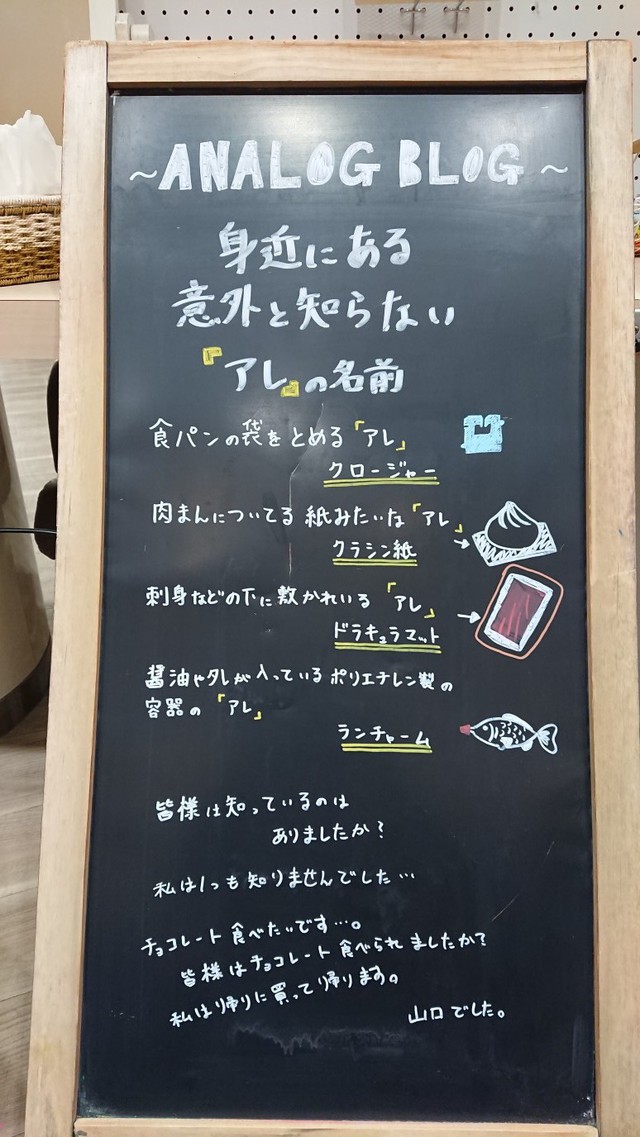 ~ANALOG BLOG~
身近にある
意外と知らない
『アレ』の名前
食パンの袋をとめる「アレ」
クロージャー
肉まんについてる紙みたいな「アレ」
クラシン紙
刺身などの下に敷かれいる「アレ」
ドラキュラマット
醤油やタレが入っているポリエチレン製の
容器の「アレ」
ランチャーム
皆様は知っているのは
ありましたか?
私は1つも知りませんでした…
チョコレート食べたいです…。
皆様はチョコレート食べられましたか?
私は帰りに買って帰ります。
山口でした。